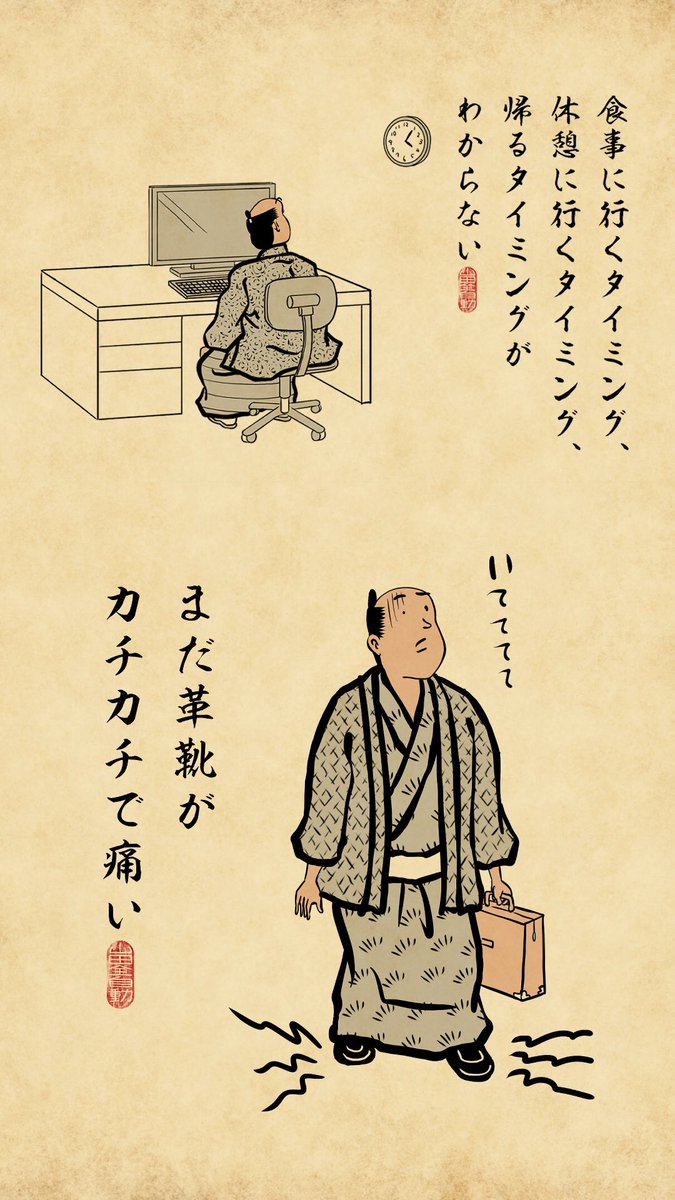 食事に行くタイミング、
休憩に行くタイミング、
帰るタイミングが
わからない
いてててて
まだ革靴が
カチカチで痛い